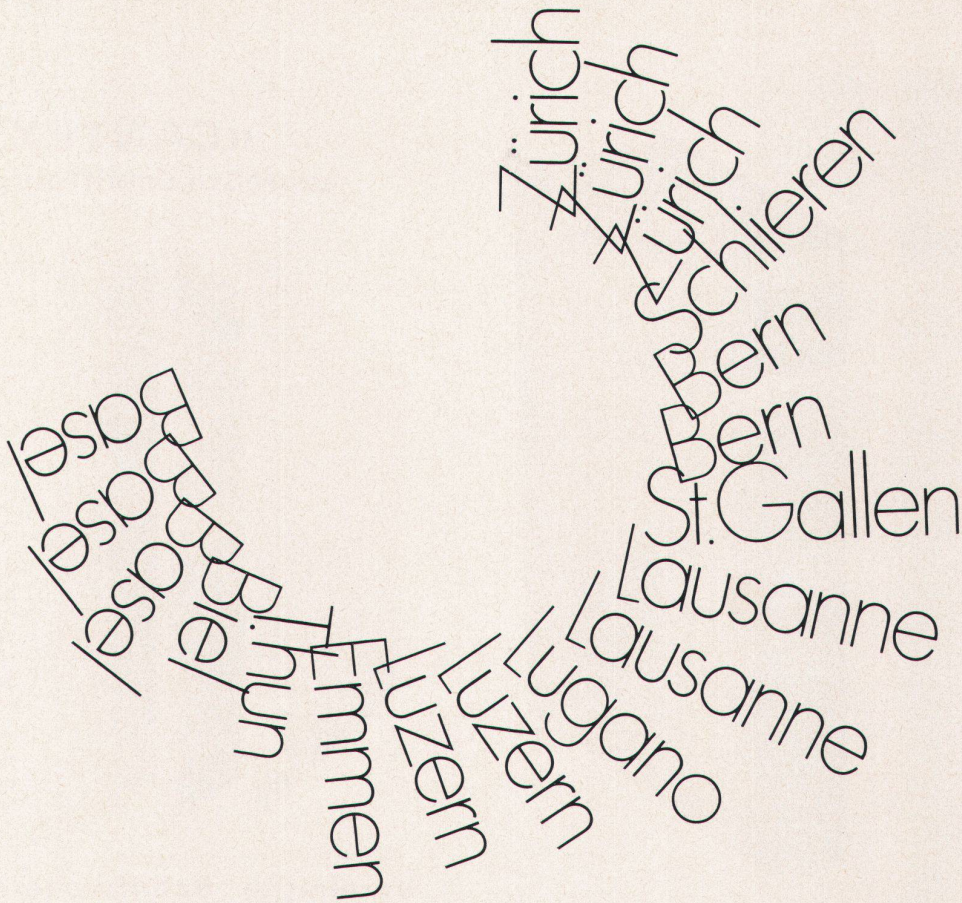 Zürich
Zürich
Zürich
Schlieren
Bern
Bern
St.Gallen
Lausanne
Lausanne
Lugano
Luzern
Luzern
Emmen
Thun
Biel
Basel
Basel
Basel